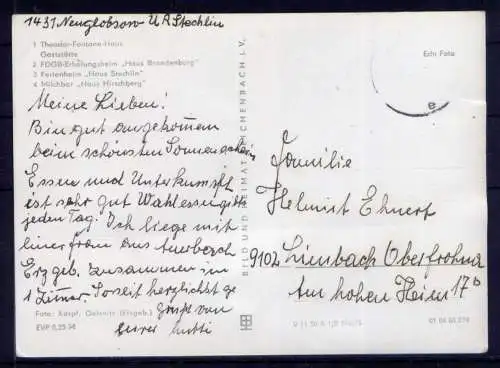 1431 Neuglobsow U R Stechlin
1 Theodor-Fontane-Haus
Gaststätte
2 FDGB-Erholungsheim „Haus Brandenburg"
3 Ferienheim „Haus Stechlin"
4 Milchbar „Haus Hirschberg"
Meine Lieben!
Bin gut angekommen
beim schönsten Sonnenschein
Essen und Unterkunft
ist sehr gut Wahlessen gibts
jeden Tag. Ich liege mit
einer Frau aus Auerbach
Erzgeb. zusammen im
1 Zimmer. So seit herzlichst ge
grüßt von
eurer Mutti
Foto: Karpf, Oelsnitz (Erzgeb.)
EVP 0,25 M
BILD UND HEIMAT REICHENBACH I. V.
Echt Foto
e
Familie
Helmut Ehnert
9102 Limbach Oberfrohna
Am hohen Hain 17b
01 04 03 070